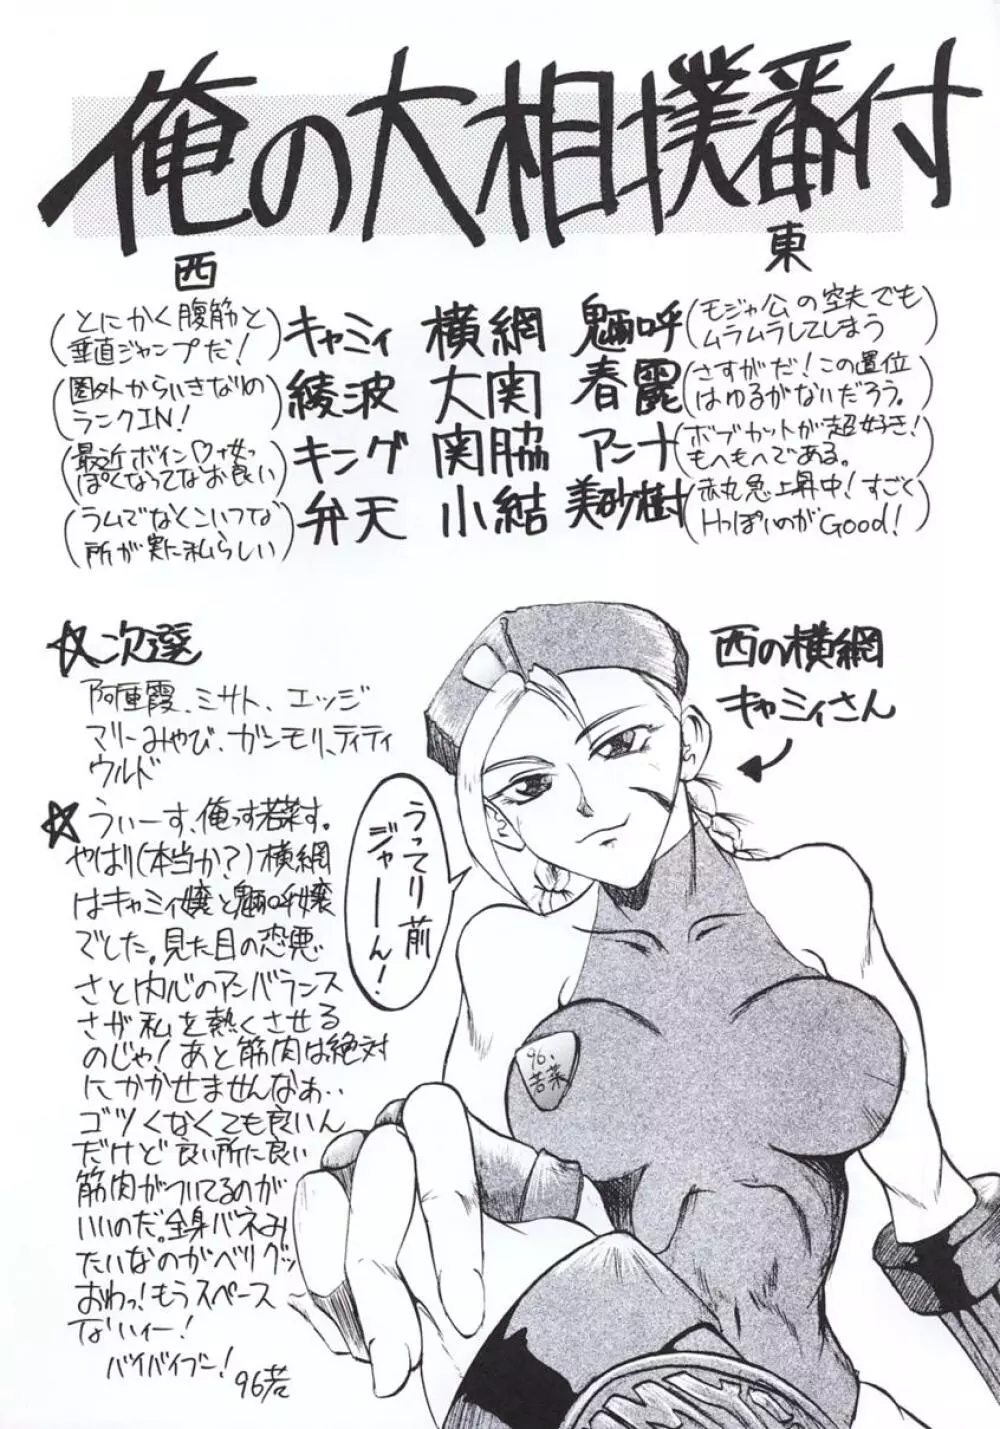 俺の大相撲番付
東
西
魎呼 横綱 キャミィ
(モジャ公の空夫でも
ムラムラしてしまう)
(とにかく腹筋と
垂直ジャンプだ!)
春麗 大関 綾波
(さすがだ!この置位
はゆるがないだろう。)
(圏外からいきなりの
ランクIN!)
アンナ 関脇 キング
(ボブカットが超好き!
もへもへである。)
(最近ボイン♡女っ
ぽくなってなお良い)
美砂樹 小結 弁天
(赤丸急上昇中!すごく
HっぽいのがGood!)
(ラムでなくこいつな
所が実に私らしい)
☆次選
阿重霞、ミサト、エッジ
マリーみやび、ガンモリ、ティティ
ウルド
☆うぃーす、俺っす若菜す。
やはり(本当か?)横綱
はキャミィ嬢と魎呼嬢
でした。見た目の恐悪
さと内心のアンバランス
さが私を熱くさせる
のじゃ!あと筋肉は絶対
にかかせませんなぁ‥
ゴツくなくても良いん
だけど良い所に良い
筋肉がついてるのが
いいのだ。全身バネみ
たいなのがベリグッ
おわっ!もうスペース
なぃィー!
バイバイブー!
96若
西の横綱
キャミィさん
うってり前
ジャーーん!
96、
若菜